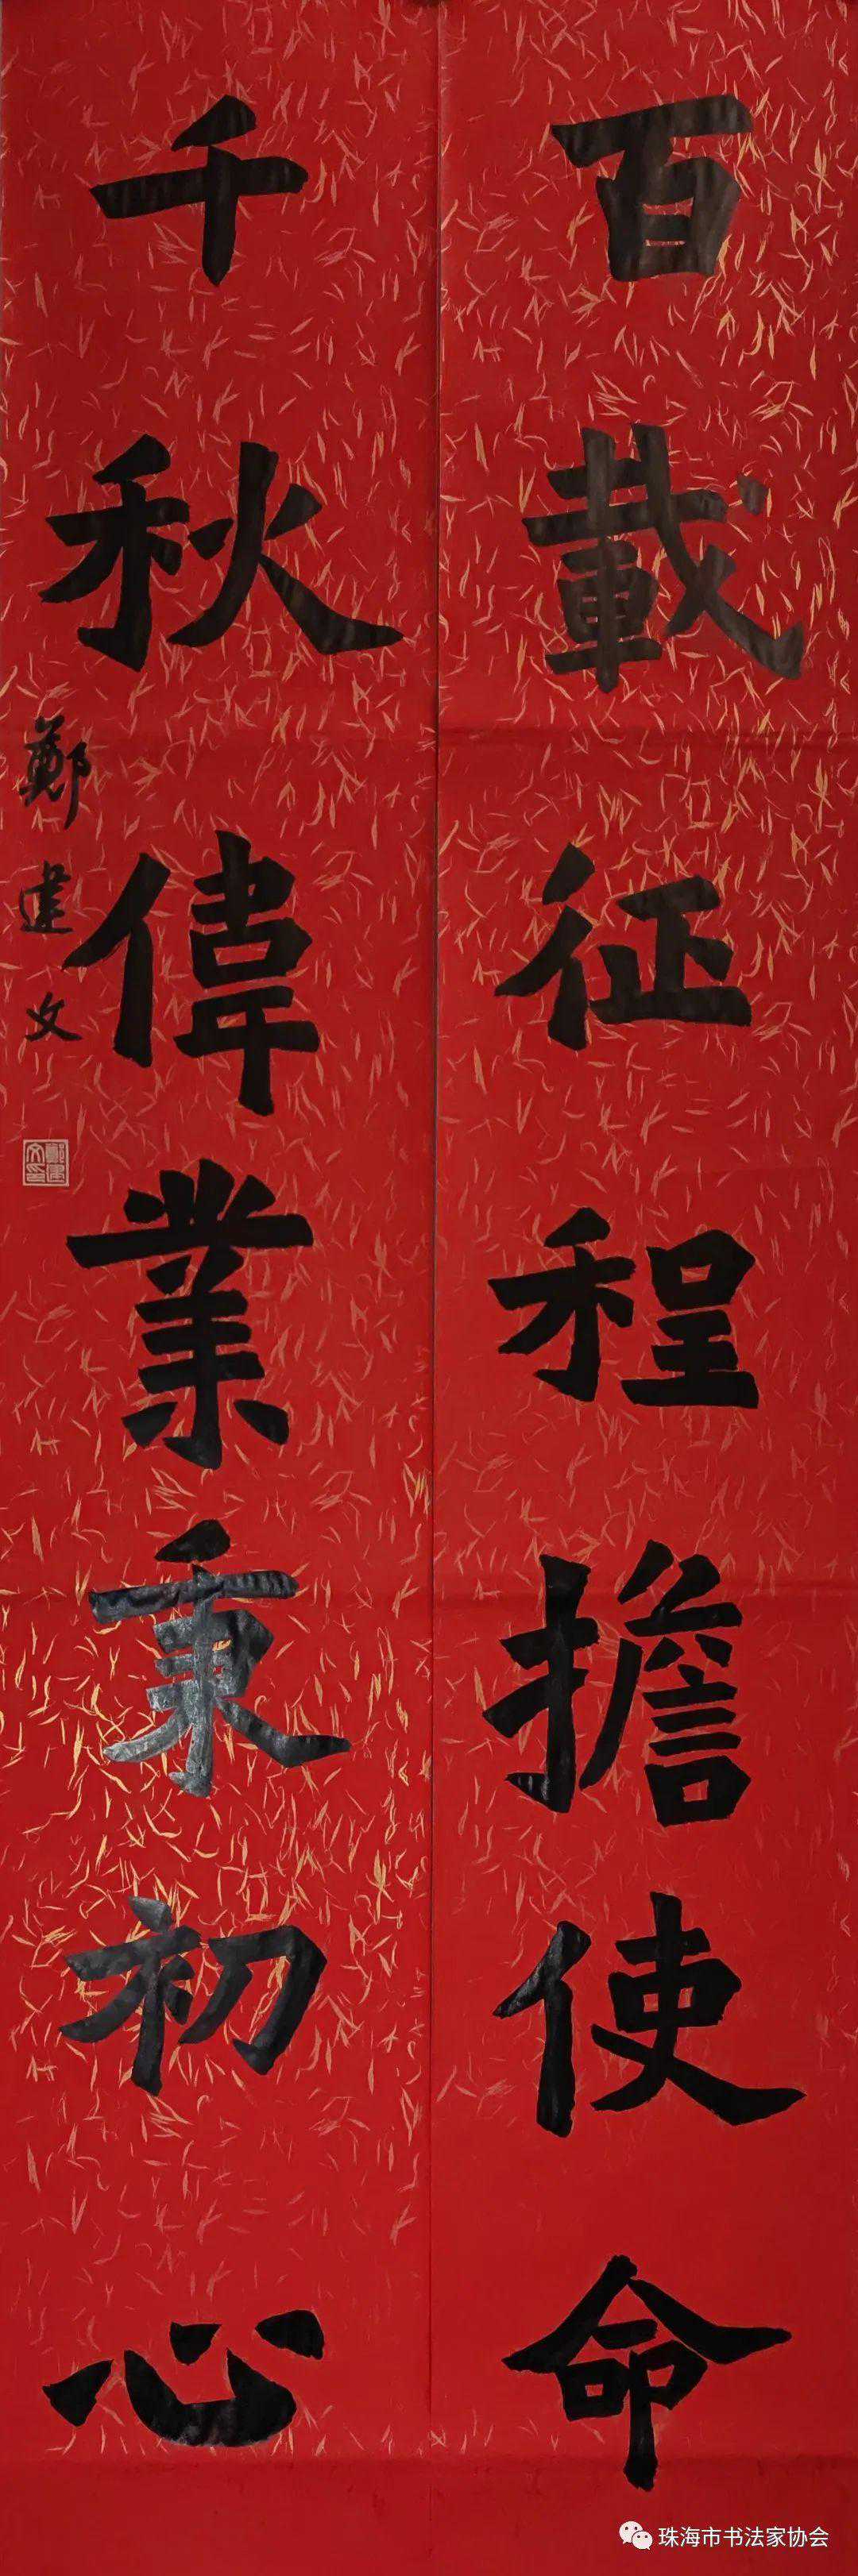 百載征程擔使命
千秋偉業秉初心
鄭建文
鄭建文印
珠海市书法家协会